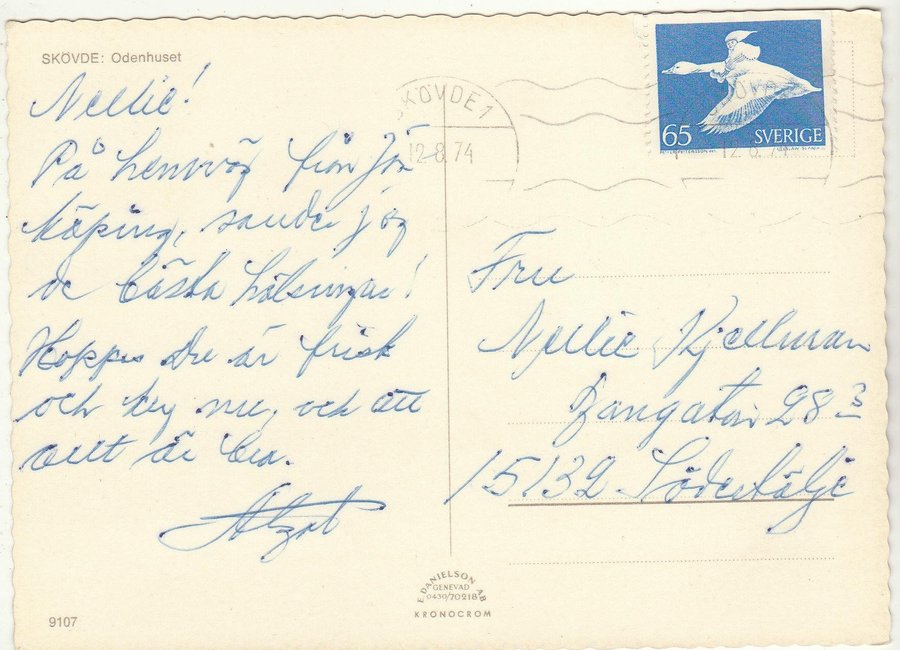 SKÖVDE: Odenhuset
Nellie!
På hemväg från Jön
köping, sänder jag
de bästa hälsningar!
Hoppas Du är frisk
och kry nu, och att
allt är bra.
9107
SKÖVDE 1
12-8.74
65 SVERIGE
Fru
Nellie Kjellman
28 3
15132 Södertälje
E. DANIELSON AB
GENEVAD
0430/70218
KRONOCROM